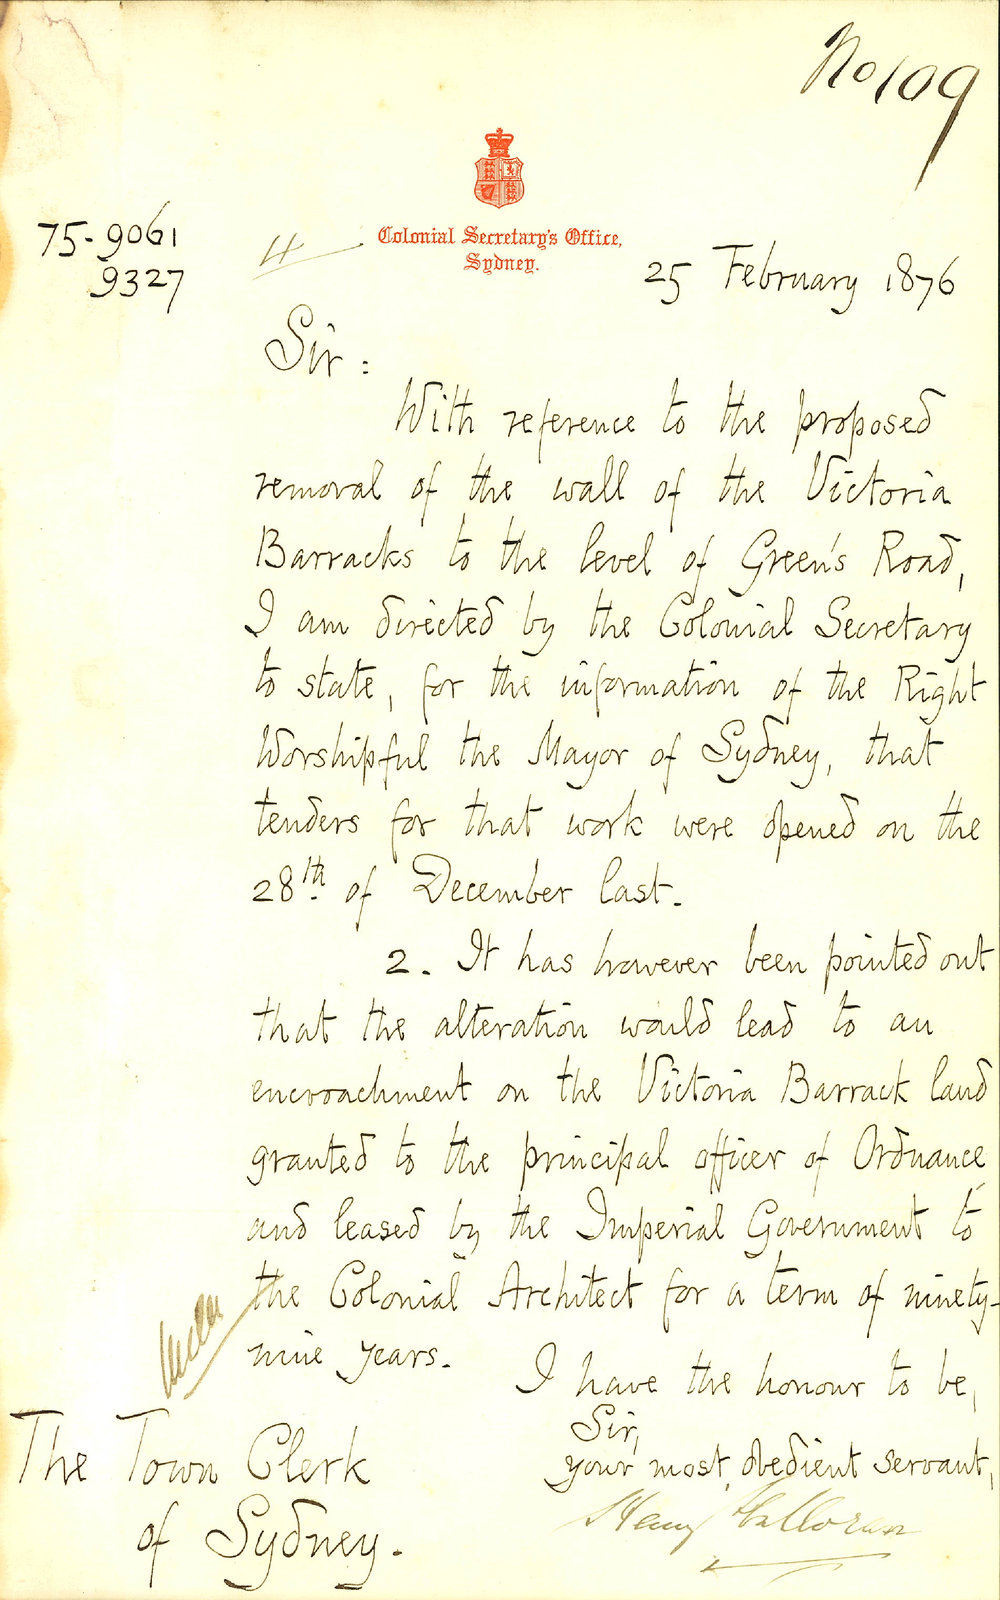 No 109
75-9061
9327
Colonial Secretary's Office,
Sydney.
25 February 1876
Sir:
With reference to the proposed
removal of the wall of the Victoria
Barracks to the level of Green's Road,
I am directed by the Colonial Secretary
to state, for the information of the Right
Worshipful the Mayor of Sydney, that
tenders for that work were opened on the
28th of December last.
2. It has however been pointed out
that the alteration would lead to an
encroachment on the Victoria Barrack land
granted to the principal officer of Ordnance
and leased by the Imperial Government to
the Colonial Architect for a term of ninety-
nine years.
I have the honour to be,
Sir,
your most obedient servant,
Henry Halloran
The Town Clerk
of Sydney.